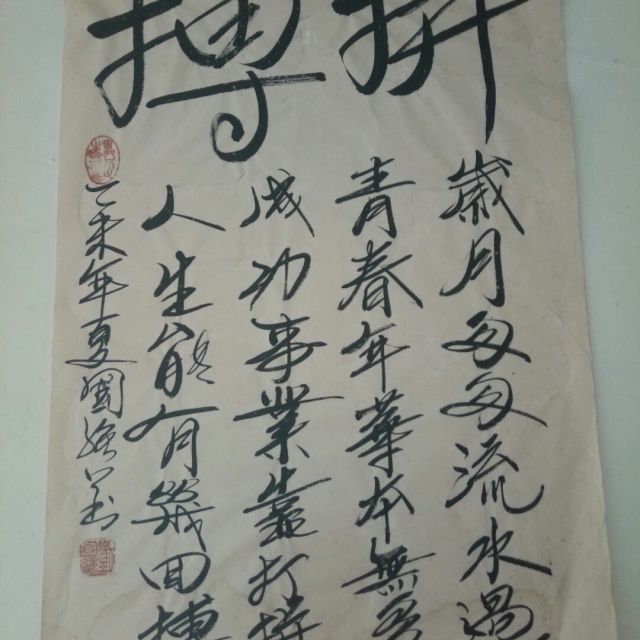 拼搏
歲月匆匆流水過
青春年華本無
成功事業靠打拼
人生能有幾回搏
乙未年夏閩